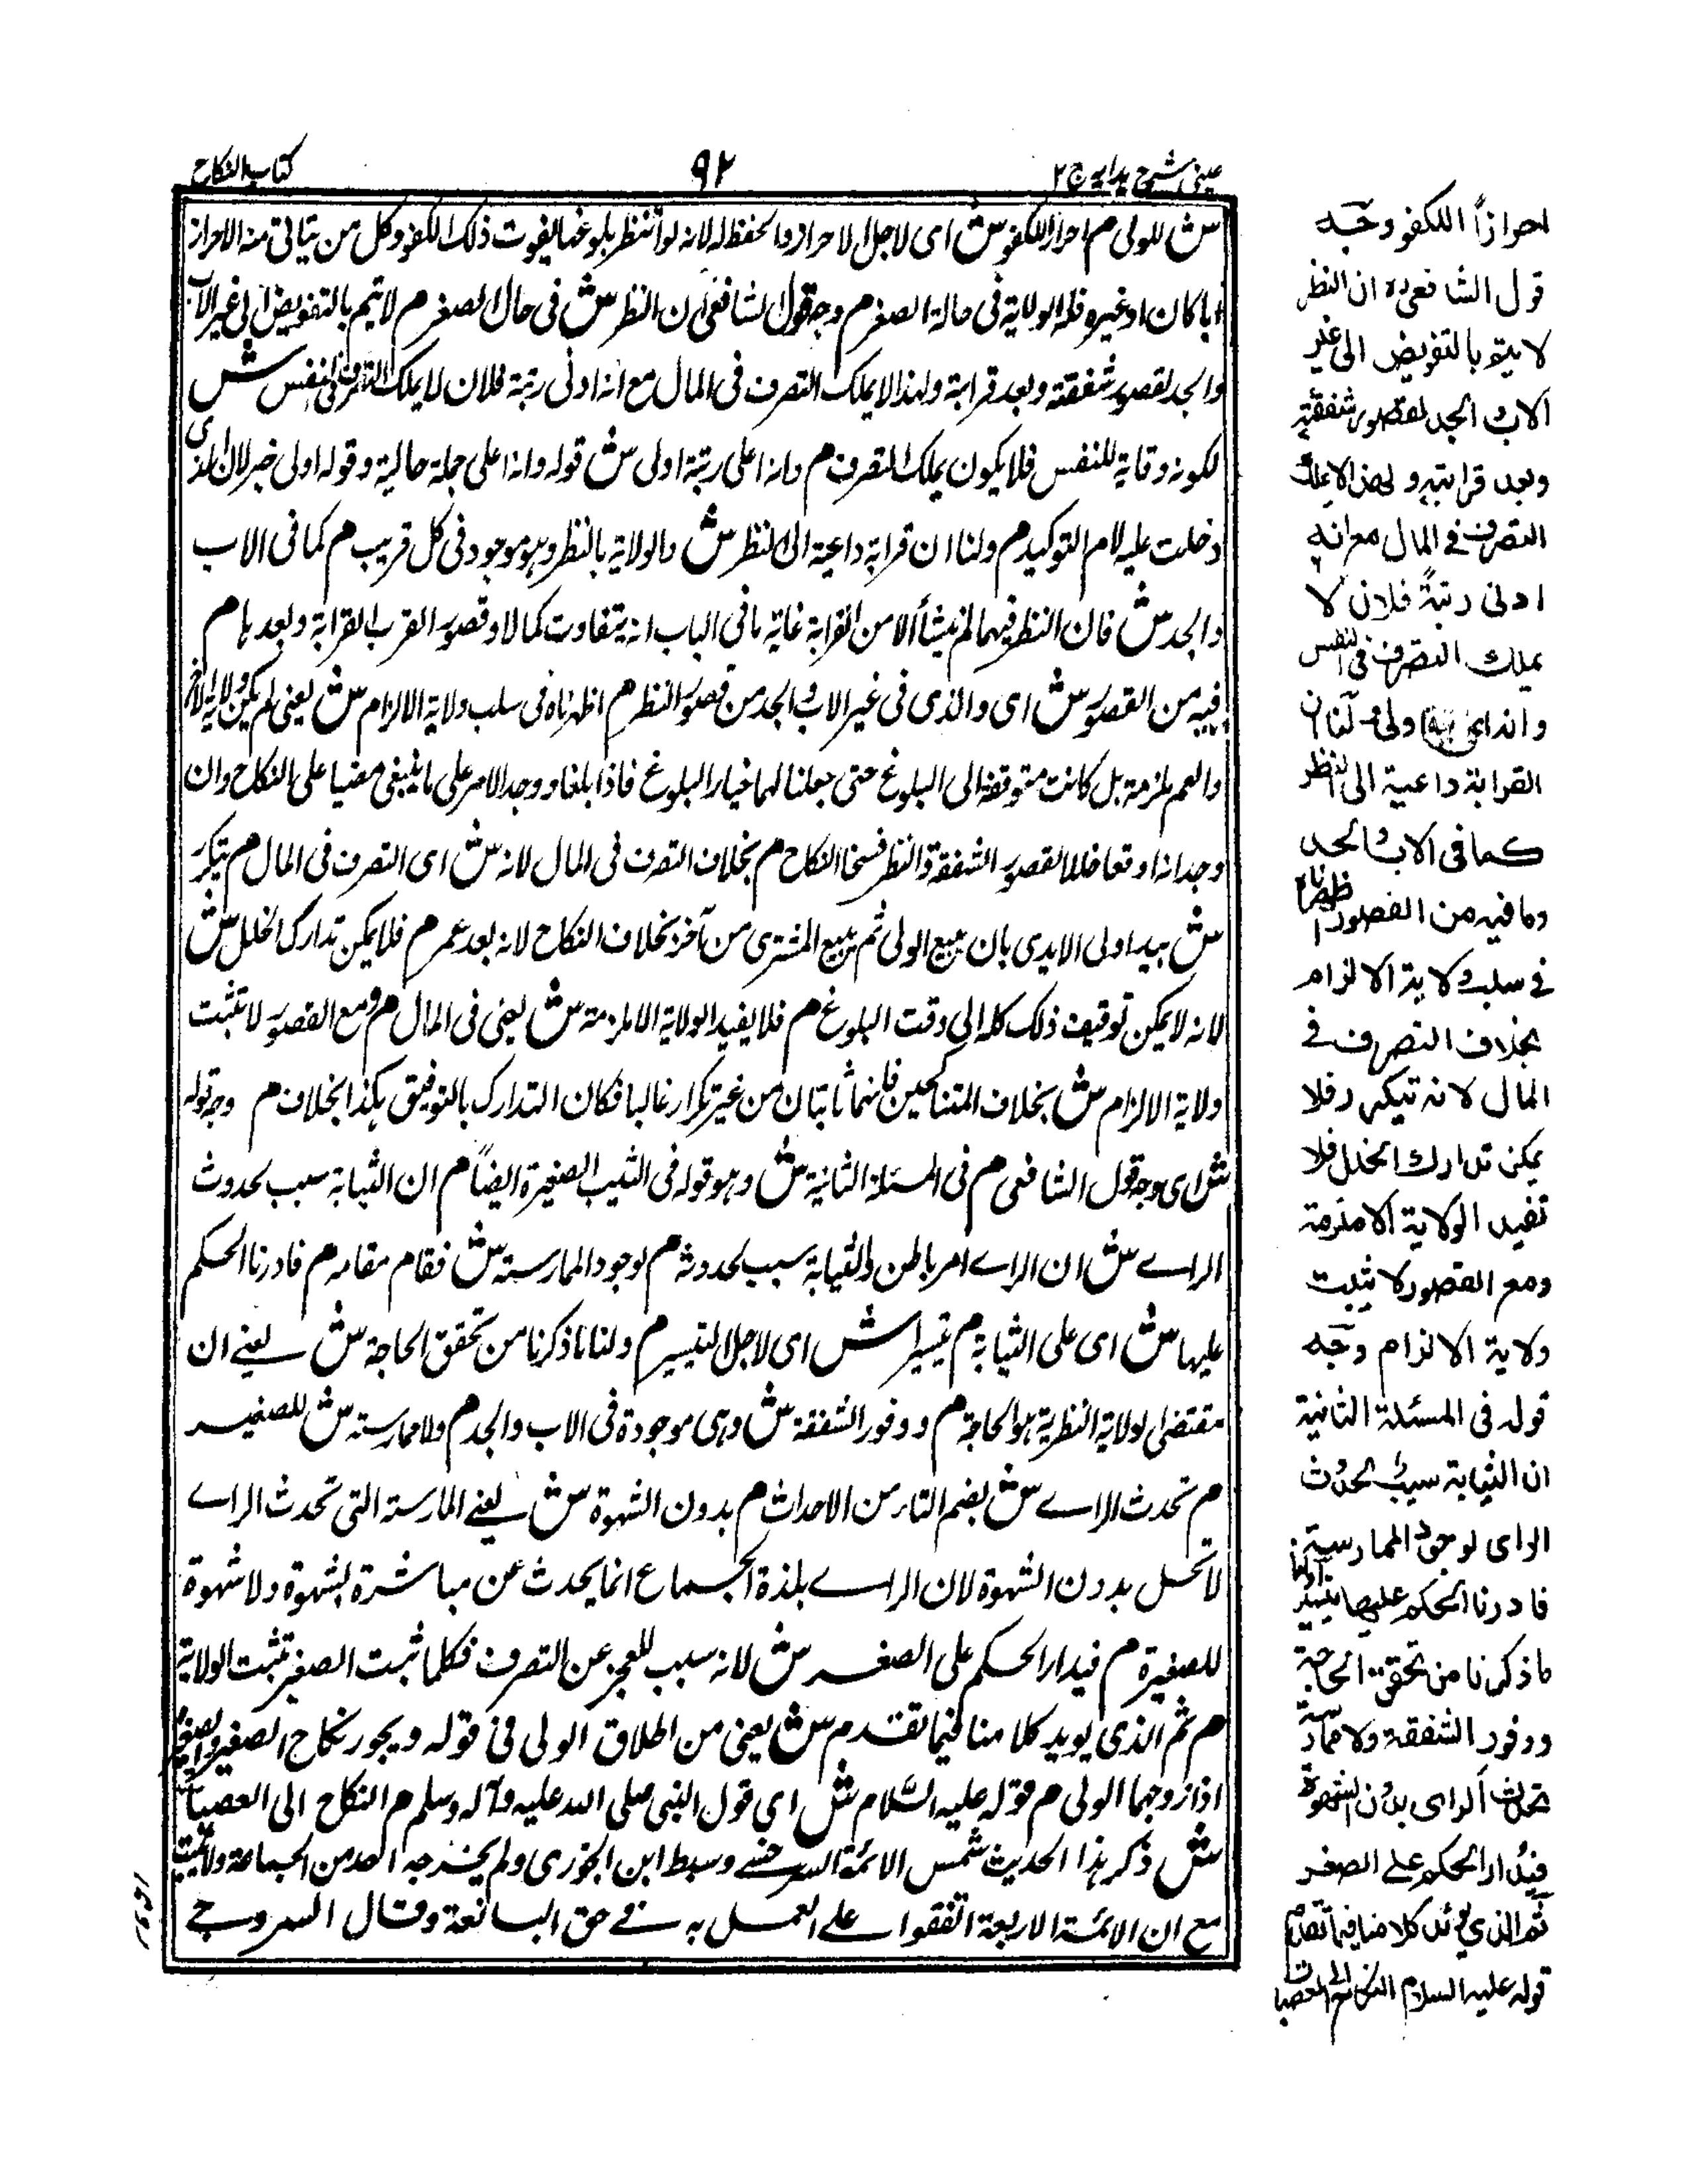 عینی شرح ہدایہ ج ۲
۹۲
کتاب النکاح
ش للولی م احرازا للکفو ش ای لاجل الاحراز والحفظ له لانه لو انتظر بلوغها لیفوت ذلک الکفو وکل من یتاتی منه الاحراز
ابا کان او غیره فله الولایة فی حالة الصغر م وجه قول الشافعی ان النظر ش فی حال الصغر م لا یتم بالتفویض الی غیر الاب
والجد لقصور شفقته وبعد قرابته ولهذا لا یملک التصرف فی المال مع انه ادنی رتبة فلان لا یملک التصرف فی النفس ش
لکونه وقایة للنفس فلا یکون یملک التصرف م وانه اعلی رتبة اولی ش قوله وانه اعلی جملة حالیة وقوله اولی خبر لان الذی
دخلت علیه لام التوکید م ولنا ان قرابة داعیة الی النظر ش والولایة بالنظر وہو موجود فی کل قریب م کما فی الاب
والجد ش فان النظر فیهما لم ینشأ الا من القرابة غایة ما فی الباب انه یتفاوت کمالا وقصور القرب القرابة وبعدہا م
فیه من القصور ش ای والذی فی غیر الاب والجد من قصور النظر م اظهرناه فی سلب ولایة الالزام ش یعنی لم یکن ولایة الاخ
والعم ملزمة بل کانت متوقفة الی البلوغ حتی جعلنا لهما خیار البلوغ فاذا بلغا ووجد الامر علی ما ینبغی مضیا علی النکاح وان
وجدانه اوقعا خللا لقصور الشفقة والنظر فسخا النکاح م بخلاف التصرف فی المال لانه ش ای التصرف فی المال م یتکرر
ش بید اولی الایدی بان یبیع الولی ثم یبیع المشتری من آخر بخلاف النکاح لانه بعد عمر م فلا یمکن تدارک الخلل ش
لانه لا یمکن توقیف ذلک کله الی وقت البلوغ م فلا یفید الولایة الا ملزمة ش یعنی فی المال م ومع القصور لا تثبت
ولایة الالزام ش بخلاف المتناکحین فانهما ثابتان من غیر تکرار غالبا فکان التدارک بالتوفیق ہکذا بخلاف م وجه قوله
ش ای وجه قول الشافعی م فی المسئلة الثانیة ش وہو قوله فی الثیب الصغیرة ایضاً م ان الثیابة سبب لحدوث
الراے ش ان الراے امر باطن والثیابة سبب لحدوثه م لوجود الممارسة ش فقام مقامه م فادرنا الحکم
علیها ش ای علی الثیابة م تیسیرا ش ای لاجل التیسیر م ولنا ما ذکرنا من تحقق الحاجة ش یعنے ان
مقتضی الولایة النظریة ہو الحاجة م ووفور الشفقة ش وہی موجودة فی الاب والجد م ولا ممارسة ش للصغیر
م تحدث الراے ش بضم التاء من الاحداث م بدون الشهوة ش یعنے الممارسة التی تحدث الراے
لا تحصل بدون الشهوة لان الراے بلذة الجماع انما یحدث عن مباشرة الشهوة ولا شهوة
للصغیرة م فیدار الحکم علی الصغر ش لانه سبب للعجز عن التصرف فکلما ثبت الصغر تثبت الولایة
م ثم الذی یوید کلامنا فیما تقدم ش یعنی من اطلاق الولی فی قوله ویجوز نکاح الصغیر والصغیرة
اذا زوجهما الولی م قوله علیه السّلام ش ای قول النبی صلی الله علیه وآله وسلم م النکاح الی العصبات
ش ذکر ہذا الحدیث شمس الائمة السرخسے وسبط ابن الجوزی ولم یخرجه احد من الجماعة ولا یثبت
مع ان الائمة الاربعة اتفقوا علے العمل به فے حق البالغة وقال السروجے
احرازاً للکفو وجه
قول الشافعی ره ان النظر
لا یتم بالتفویض الی غیر
الاب والجد لقصور شفقته
وبعد قرابته ولهذا لا یملک
التصرف فی المال مع انه
ادنی رتبة فلان لا
یملک التصرف فی النفس
وانه اعلی رتبة اولی ولنا ان
القرابة داعیة الی النظر
کما فی الاب والجد
وما فیه من القصور اظهرناه
فے سلب ولایة الالزام
بخلاف التصرف فے
المال لانه یتکرر فلا
یمکن تدارک الخلل فلا
تفید الولایة الا ملزمة
ومع القصور لا یثبت
ولایة الالزام وجه
قوله فی المسئلة الثانیة
ان الثیابة سبب لحدوث
الرای لوجود الممارسة
فادرنا الحکم علیها تیسیرا ولنا
ما ذکرنا من تحقق الحاجة
ووفور الشفقة ولا ممارسة
تحدث الرای بدون الشهوة
فیدار الحکم علے الصغر
ثم الذی یؤید کلامنا فیما تقدم
قوله علیه السلام النکاح الی العصبات